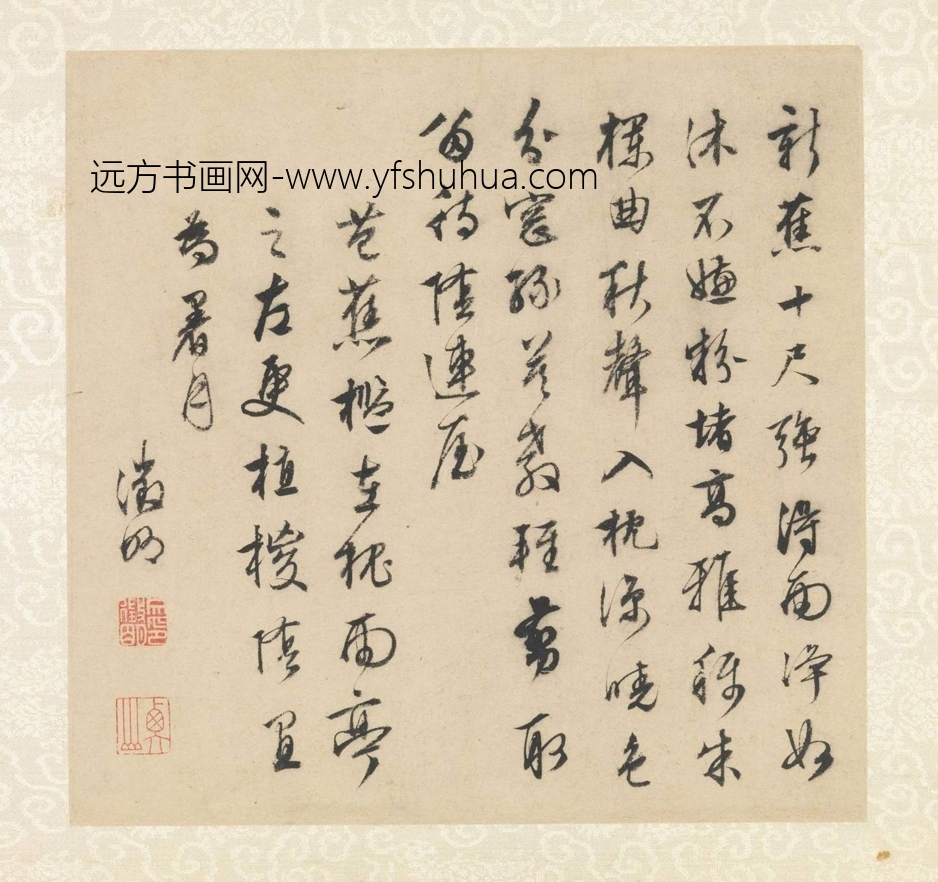 新蕉十尺強得雨淨如
沐不嫌粉堵高雅稱朱
欄曲秋聲入枕涼曉色
分窗綠莫教輕剪取
留待陰連屋
芭蕉檻在槐雨亭
之左更植椶陰宜
為暑月
徵明
远方书画网-www.yfshuhua.com